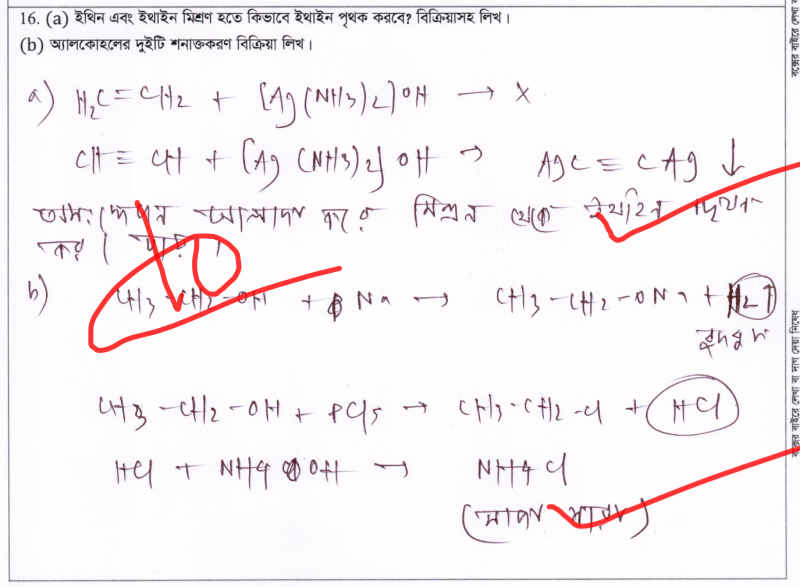 16. (a) ইথিন এবং ইথাইন মিশ্রণ হতে কিভাবে ইথাইন পৃথক করবে? বিক্রিয়াসহ লিখ।
(b) অ্যালকোহলের দুইটি শনাক্তকরণ বিক্রিয়া লিখ।
a) H2C=CH2 + [Ag(NH3)2]OH → X
CH≡CH + [Ag(NH3)2]OH → AgC≡CAg ↓
আলাদা করে মিশ্রন থেকে ইথাইন
করা যায়।
10
b) CH3-CH2-OH + Na → CH3-CH2-ONa + H2↑
বুদবুদ
CH3-CH2-OH + PCl5 → CH3-CH2-Cl + HCl
HCl + NH4OH → NH4Cl
(সাদা ধোয়া)